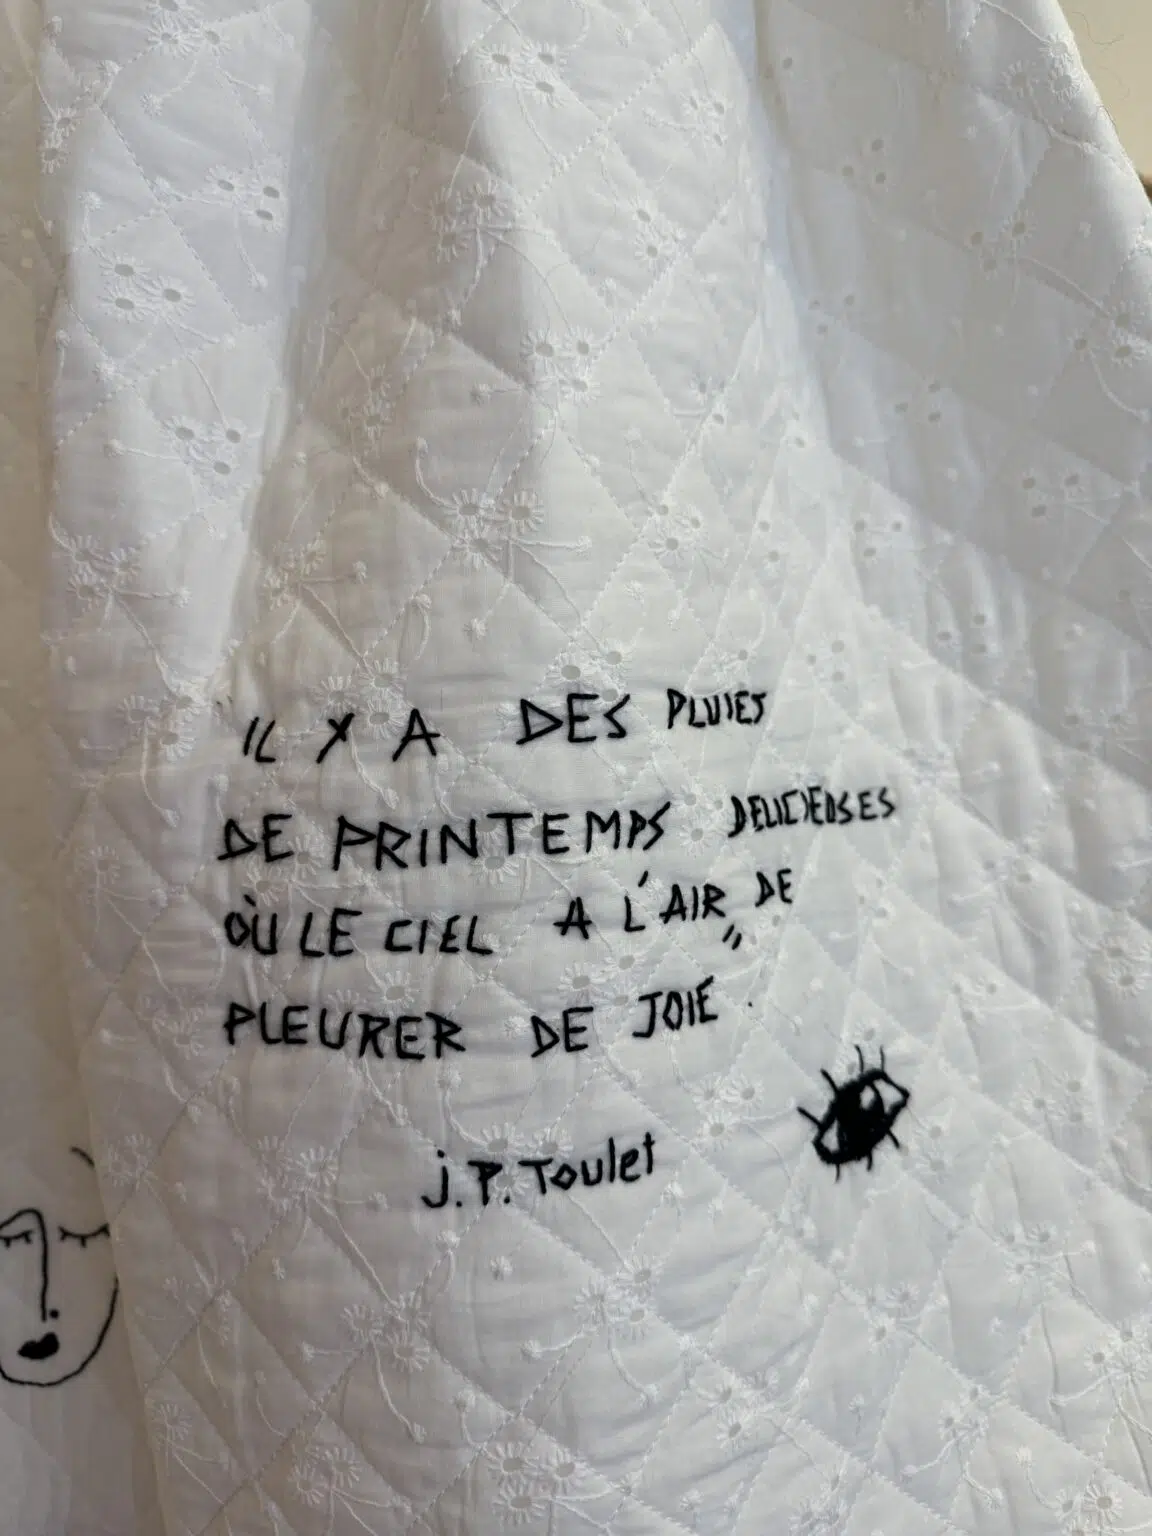 IL Y A DES PLUIES
DE PRINTEMPS DELICIEUSES
OÙ LE CIEL A L'AIR DE
PLEURER DE JOIE.
J.P. Toulet